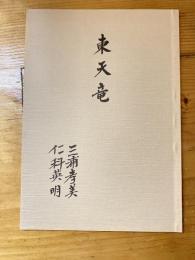 東天竜
三浦孝美
仁科英明